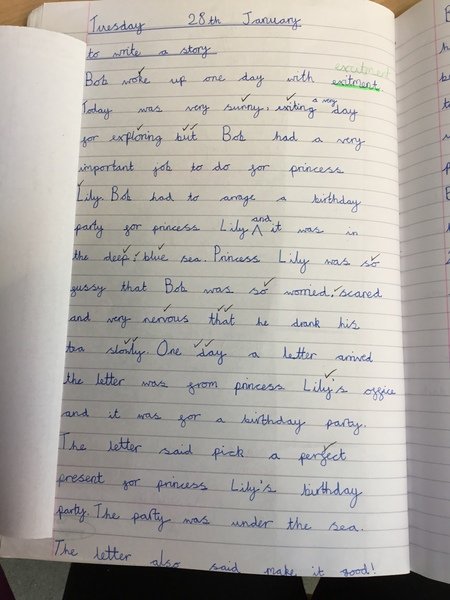 Tuesday 28th January
to write a story
excitment
Bob woke up one day with exitment.
Today was very sunny, exiting a very day
for exploring but Bob had a very
important job to do for princess
Lily. Bob had to arrage a birthday
party for princess Lily and it was in
the deep, blue sea. Princess Lily was so
gussy that Bob was so worried, scared
and very nervous that he drank his
tea slowly. One day a letter arrived
the letter was from princess Lily's office
and it was for a birthday party.
The letter said pick a perfect
present for princess Lily's birthday
party. The party was under the sea.
The letter also said make it good!